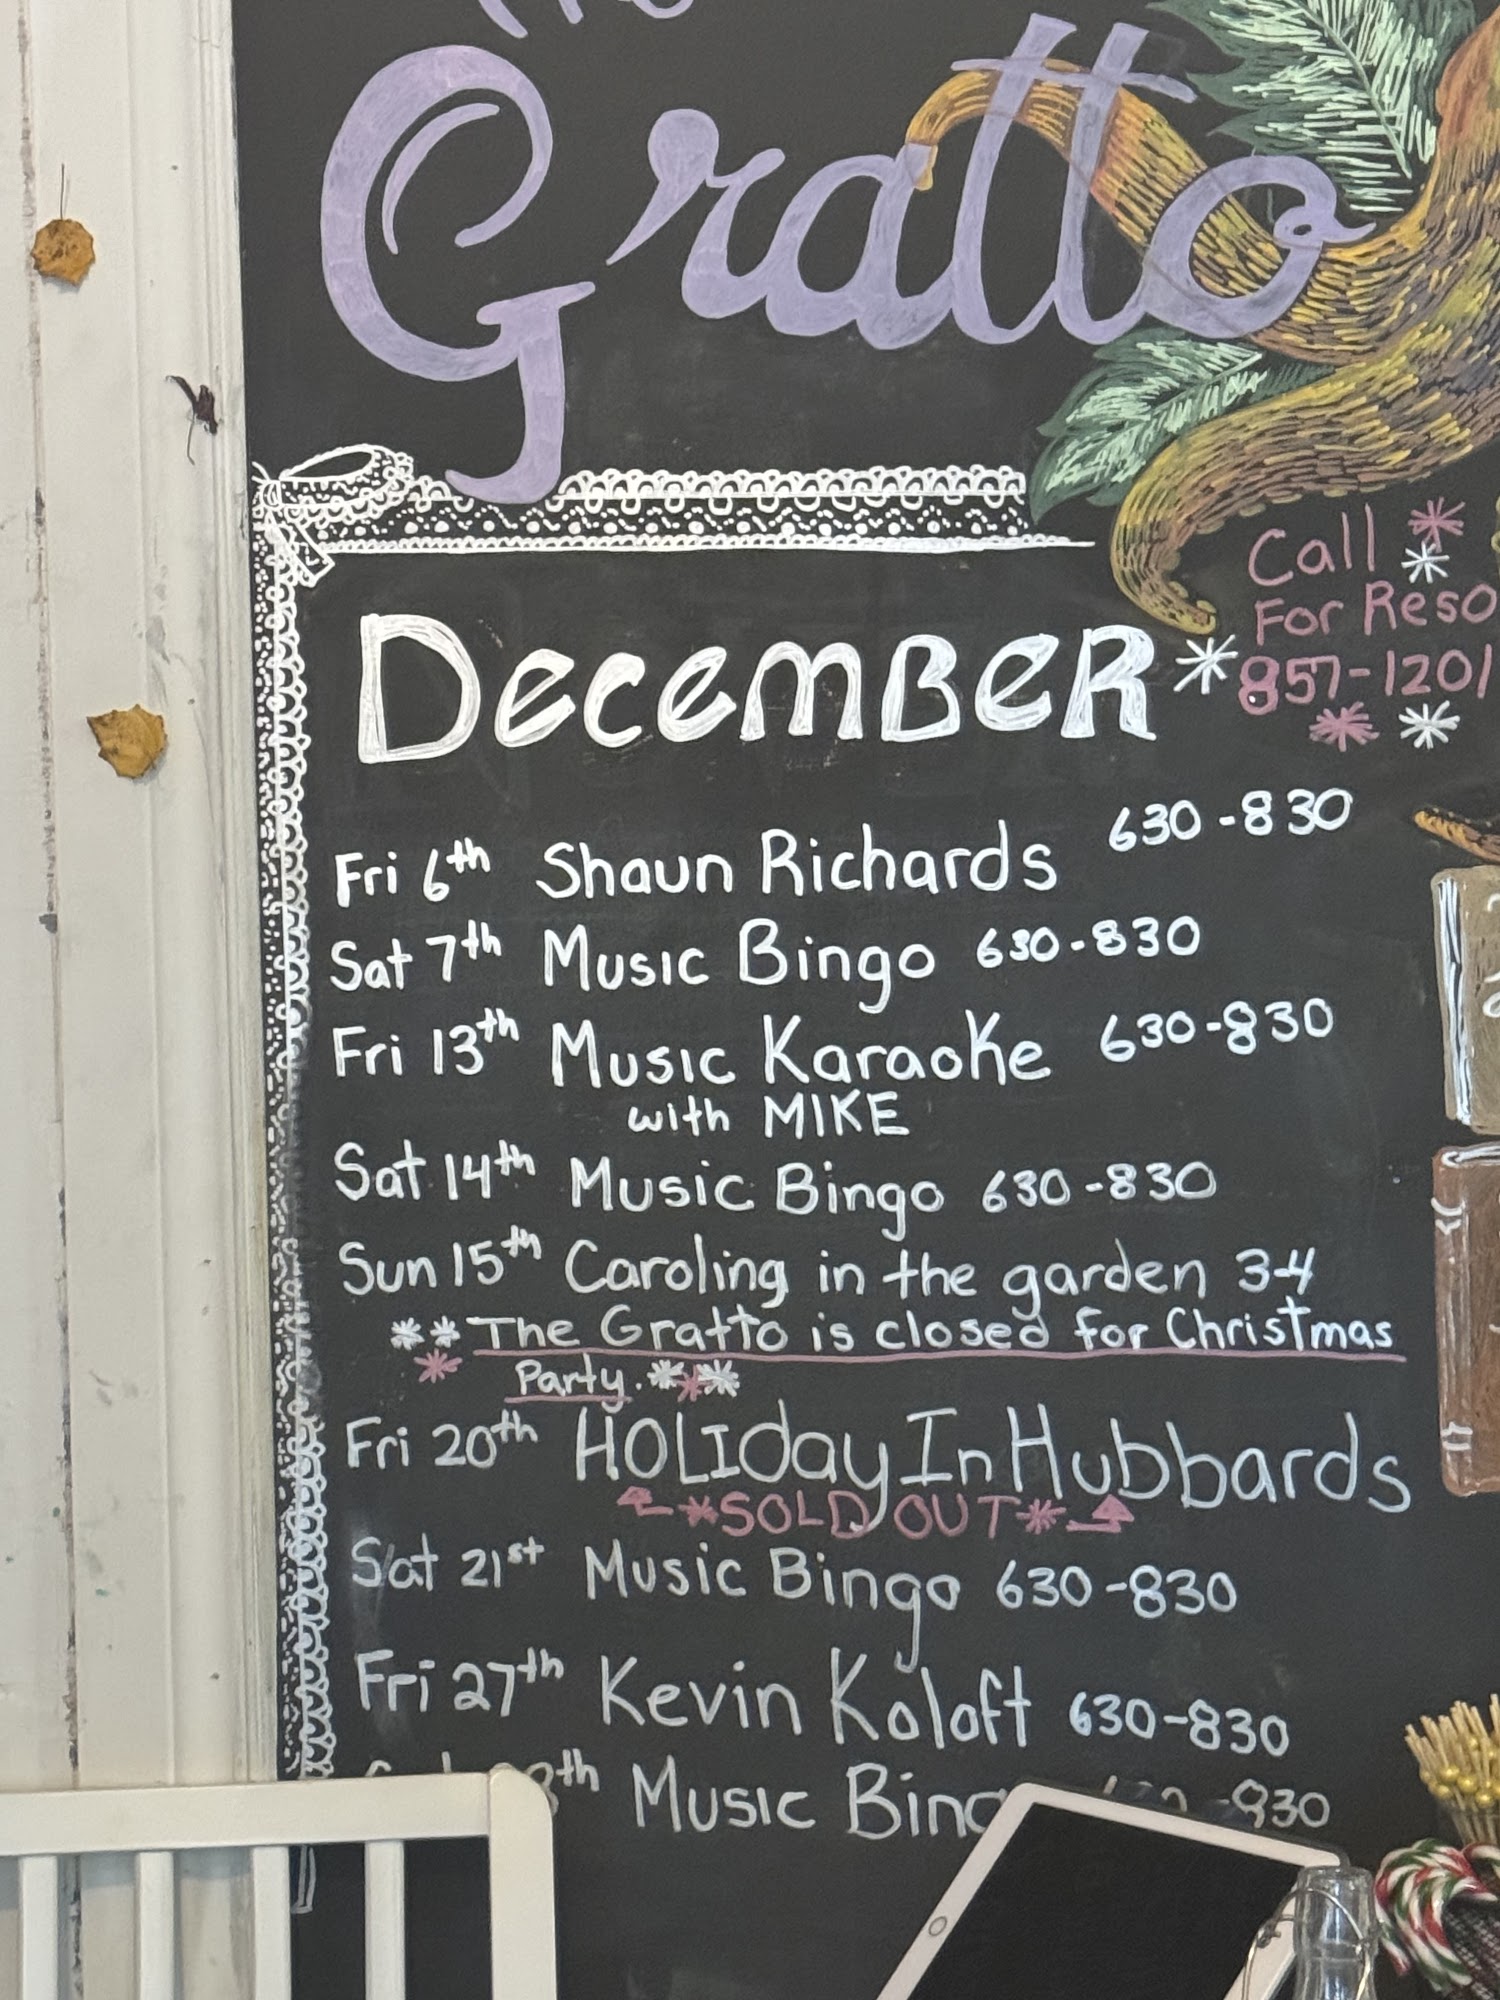 Gratto
Call
For Reso
857-1201
December
Fri 6th Shaun Richards 630-830
Sat 7th Music Bingo 630-830
Fri 13th Music Karaoke 630-830
with MIKE
Sat 14th Music Bingo 630-830
Sun 15th Caroling in the garden 3-4
** The Gratto is closed for Christmas
Party.
Fri 20th HOLIday In Hubbards
*SOLD OUT*
Sat 21st Music Bingo 630-830
Fri 27th Kevin Koloft 630-830
Music Bing -830